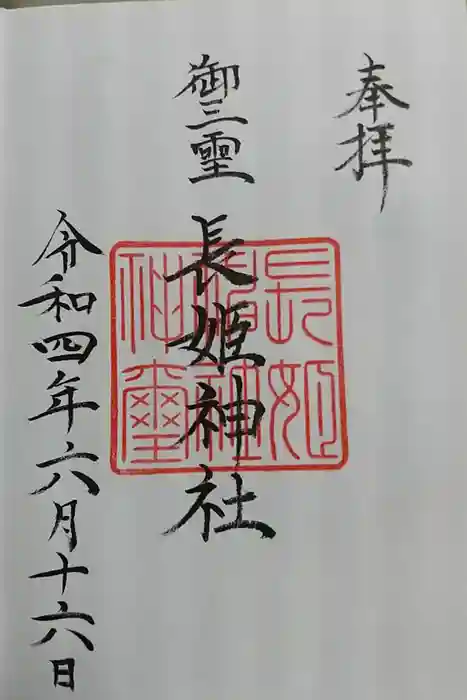 奉拝
御三霊
長姫神社
令和四年六月十六日
長姫神社神璽